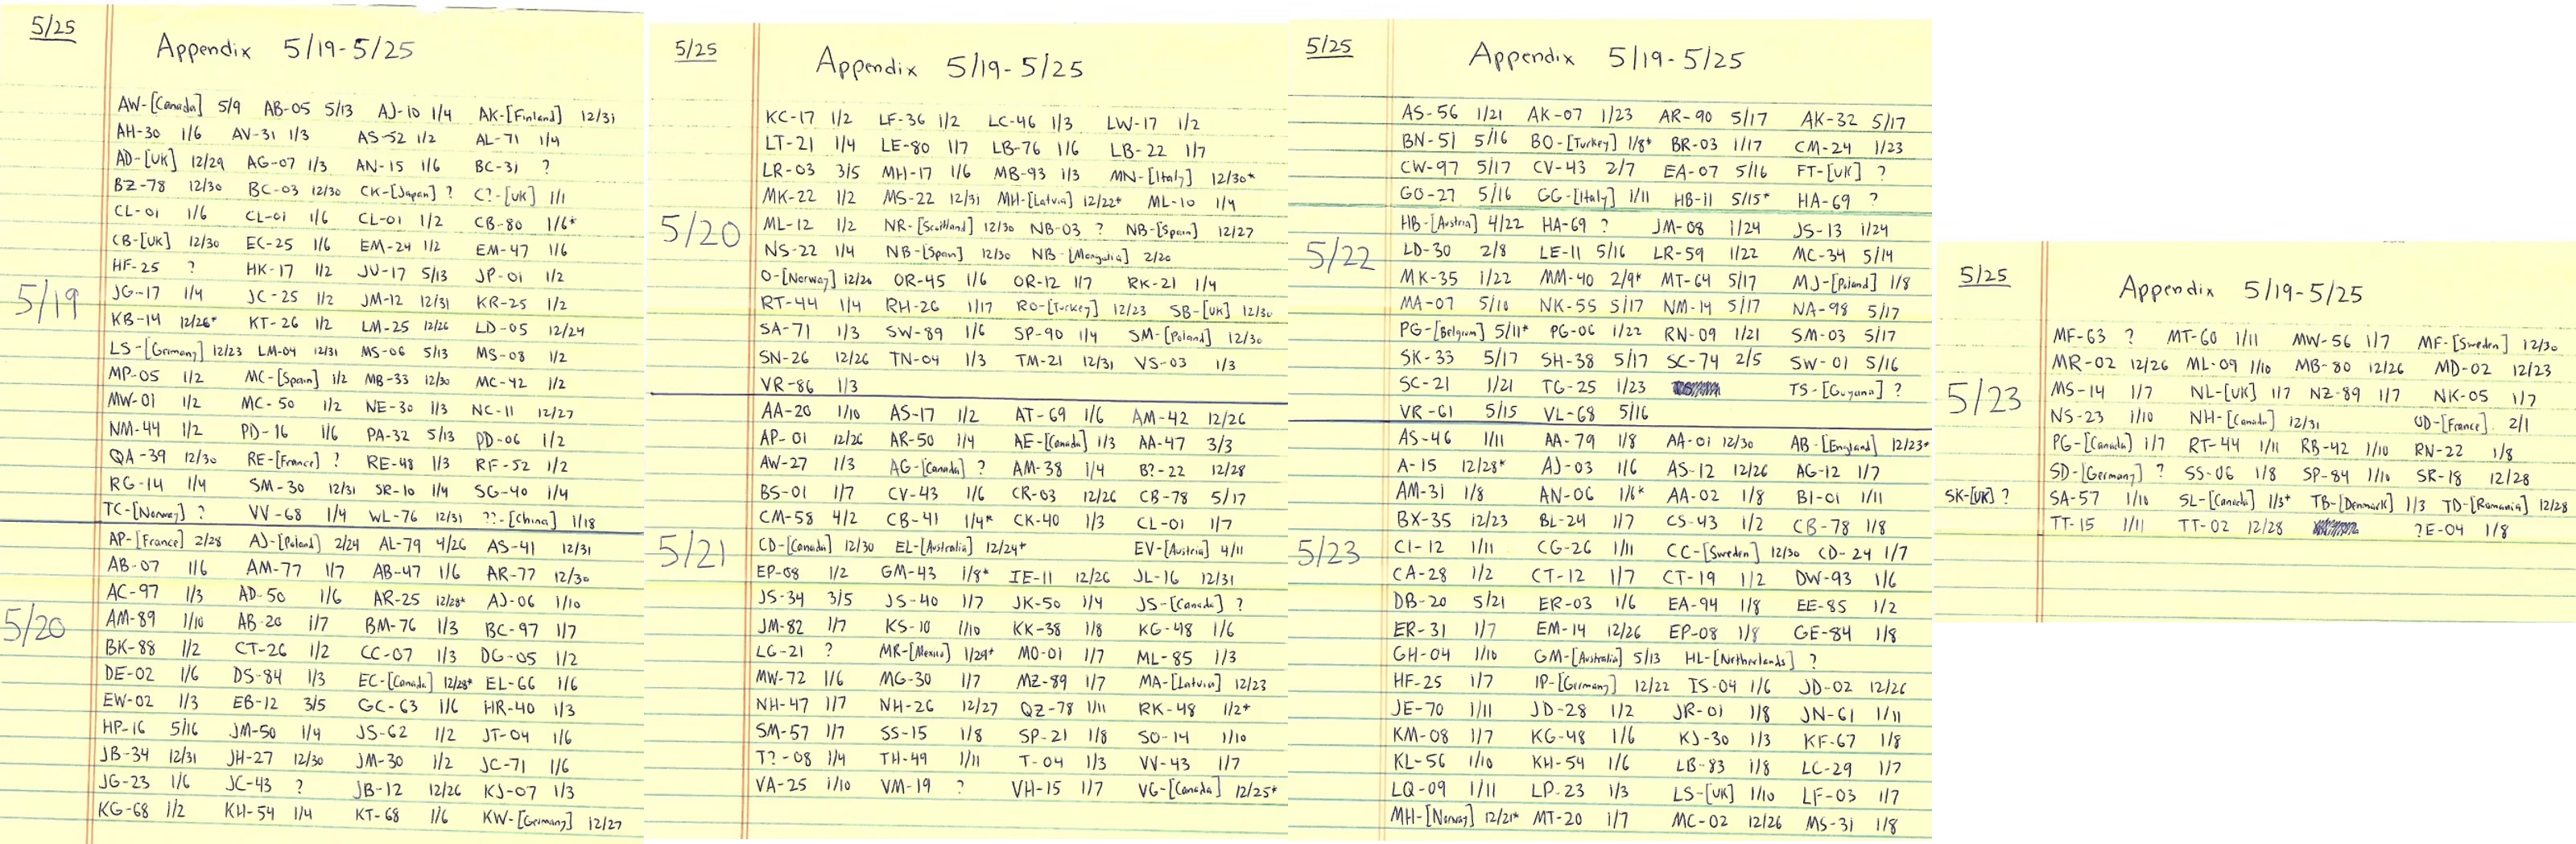 5/25
Appendix 5/19-5/25
AW-[Canada] 5/9 AB-05 5/13 AJ-10 1/4 AK-[Finland] 12/31
AH-30 1/6 AV-31 1/3 AS-52 1/2 AL-71 1/4
AD-[UK] 12/29 AG-07 1/3 AN-15 1/6 BC-31 ?
BZ-78 12/30 BC-03 12/30 CK-[Japan] ? C?-[UK] 1/1
CL-01 1/6 CL-01 1/6 CL-01 1/2 CB-80 1/6*
CB-[UK] 12/30 EC-25 1/6 EM-24 1/2 EM-47 1/6
HF-25 ? HK-17 1/2 JV-17 5/13 JP-01 1/2
5/19
JG-17 1/4 JC-25 1/2 JM-12 12/31 KR-25 1/2
KB-14 12/26* KT-26 1/2 LM-25 12/26 LD-05 12/24
LS-[Germany] 12/23 LM-04 12/31 MS-06 5/13 MS-08 1/2
MP-05 1/2 MC-[Spain] 1/2 MB-33 12/30 MC-42 1/2
MW-01 1/2 MC-50 1/2 NE-30 1/3 NC-11 12/27
NM-44 1/2 PD-16 1/6 PA-32 5/13 PD-06 1/2
QA-39 12/30 RE-[France] ? RE-48 1/3 RF-52 1/2
RG-14 1/4 SM-30 12/31 SR-10 1/4 SG-40 1/4
TC-[Norway] ? VV-68 1/4 WL-76 12/31 ??-[China] 1/18
AP-[France] 2/28 AJ-[Poland] 2/24 AL-79 4/26 AS-41 12/31
AB-07 1/6 AM-77 1/7 AB-47 1/6 AR-77 12/30
AC-97 1/3 AD-50 1/6 AR-25 12/28* AJ-06 1/10
5/20
AM-89 1/10 AB-20 1/7 BM-76 1/3 BC-97 1/7
BK-88 1/2 CT-26 1/2 CC-07 1/3 DG-05 1/2
DE-02 1/6 DS-84 1/3 EC-[Canada] 12/28* EL-66 1/6
EW-02 1/3 EB-12 3/5 GC-63 1/6 HR-40 1/3
HP-16 5/16 JM-50 1/4 JS-62 1/2 JT-04 1/6
JB-34 12/31 JH-27 12/30 JM-30 1/2 JC-71 1/6
JG-23 1/6 JC-43 ? JB-12 12/26 KJ-07 1/3
KG-68 1/2 KH-54 1/4 KT-68 1/6 KW-[Germany] 12/27
5/25
Appendix 5/19-5/25
KC-17 1/2 LF-36 1/2 LC-46 1/3 LW-17 1/2
LT-21 1/4 LE-80 1/7 LB-76 1/6 LB-22 1/7
LR-03 3/5 MH-17 1/6 MB-93 1/3 MN-[Italy] 12/30*
MK-22 1/2 MS-22 12/31 MH-[Latvia] 12/22* ML-10 1/4
5/20
ML-12 1/2 NR-[Scotland] 12/30 NB-03 ? NB-[Spain] 12/27
NS-22 1/4 NB-[Spain] 12/30 NB-[Mongolia] 2/20
O-[Norway] 12/26 OR-45 1/6 OR-12 1/7 RK-21 1/4
RT-44 1/4 RH-26 1/17 RO-[Turkey] 12/23 SB-[UK] 12/30
SA-71 1/3 SW-89 1/6 SP-90 1/4 SM-[Poland] 12/30
SN-26 12/26 TN-04 1/3 TM-21 12/31 VS-03 1/3
VR-86 1/3
AA-20 1/10 AS-17 1/2 AT-69 1/6 AM-42 12/26
AP-01 12/26 AR-50 1/4 AE-[Canada] 1/3 AA-47 3/3
AW-27 1/3 AG-[Canada] ? AM-38 1/4 B?-22 12/28
BS-01 1/7 CV-43 1/6 CR-03 12/26 CB-78 5/17
CM-58 4/2 CB-41 1/4* CK-40 1/3 CL-01 1/7
5/21
CD-[Canada] 12/30 EL-[Australia] 12/24* EV-[Austria] 4/11
EP-08 1/2 GM-43 1/8* IE-11 12/26 JL-16 12/31
JS-34 3/5 JS-40 1/7 JK-50 1/4 JS-[Canada] ?
JM-82 1/7 KS-10 1/10 KK-38 1/8 KG-48 1/6
LG-21 ? MR-[Mexico] 1/29* MO-01 1/7 ML-85 1/3
MW-72 1/6 MG-30 1/7 MZ-89 1/7 MA-[Latvia] 12/23
NH-47 1/7 NH-26 12/27 QZ-78 1/11 RK-48 1/2*
SM-57 1/7 SS-15 1/8 SP-21 1/8 SO-14 1/10
T?-08 1/4 TH-49 1/11 T-04 1/3 VV-43 1/7
VA-25 1/10 VM-19 ? VH-15 1/7 VG-[Canada] 12/25*
5/25
Appendix 5/19-5/25
AS-56 1/21 AK-07 1/23 AR-90 5/17 AK-32 5/17
BN-51 5/16 BO-[Turkey] 1/8* BR-03 1/17 CM-24 1/23
CW-97 5/17 CV-43 2/7 EA-07 5/16 FT-[UK] ?
GO-27 5/16 GG-[Italy] 1/11 HB-11 5/15* HA-69 ?
HB-[Austria] 4/22 HA-69 ? JM-08 1/24 JS-13 1/24
5/22
LD-30 2/8 LE-11 5/16 LR-59 1/22 MC-34 5/14
MK-35 1/22 MM-40 2/9* MT-64 5/17 MJ-[Poland] 1/8
MA-07 5/10 NK-55 5/17 NM-14 5/17 NA-98 5/17
PG-[Belgium] 5/11* PG-06 1/22 RN-09 1/21 SM-03 5/17
SK-33 5/17 SH-38 5/17 SC-74 2/5 SW-01 5/16
SC-21 1/21 TG-25 1/23 TS-[Guyana] ?
VR-61 5/15 VL-68 5/16
AS-46 1/11 AA-79 1/8 AA-01 12/30 AB-[England] 12/23*
A-15 12/28* AJ-03 1/6 AS-12 12/26 AG-12 1/7
AM-31 1/8 AN-06 1/6* AA-02 1/8 BI-01 1/11
BX-35 12/23 BL-24 1/7 CS-43 1/2 CB-78 1/8
5/23
CI-12 1/11 CG-26 1/11 CC-[Sweden] 12/30 CD-24 1/7
CA-28 1/2 CT-12 1/7 CT-19 1/2 DW-93 1/6
DB-20 5/21 ER-03 1/6 EA-94 1/8 EE-85 1/2
ER-31 1/7 EM-14 12/26 EP-08 1/8 GE-84 1/8
GH-04 1/10 GM-[Australia] 5/13 HL-[Netherlands] ?
HF-25 1/7 IP-[Germany] 12/22 IS-04 1/6 JD-02 12/26
JE-70 1/11 JD-28 1/2 JR-01 1/8 JN-61 1/11
KM-08 1/7 KG-48 1/6 KJ-30 1/3 KF-67 1/8
KL-56 1/10 KH-54 1/6 LB-83 1/8 LC-29 1/7
LQ-09 1/11 LP-23 1/3 LS-[UK] 1/10 LF-03 1/7
MH-[Norway] 12/21* MT-20 1/7 MC-02 12/26 MS-31 1/8
5/25
Appendix 5/19-5/25
MF-63 ? MT-60 1/11 MW-56 1/7 MF-[Sweden] 12/30
MR-02 12/26 ML-09 1/10 MB-80 12/26 MD-02 12/23
5/23
MS-14 1/7 NL-[UK] 1/7 NZ-89 1/7 NK-05 1/7
NS-23 1/10 NH-[Canada] 12/31 OD-[France] 2/1
PG-[Canada] 1/7 RT-44 1/11 RB-42 1/10 RN-22 1/8
SD-[Germany] ? SS-06 1/8 SP-84 1/10 SR-18 12/28
SK-[UK] ? SA-57 1/10 SL-[Canada] 1/3* TB-[Denmark] 1/3 TD-[Romania] 12/28
TT-15 1/11 TT-02 12/28 ?E-04 1/8